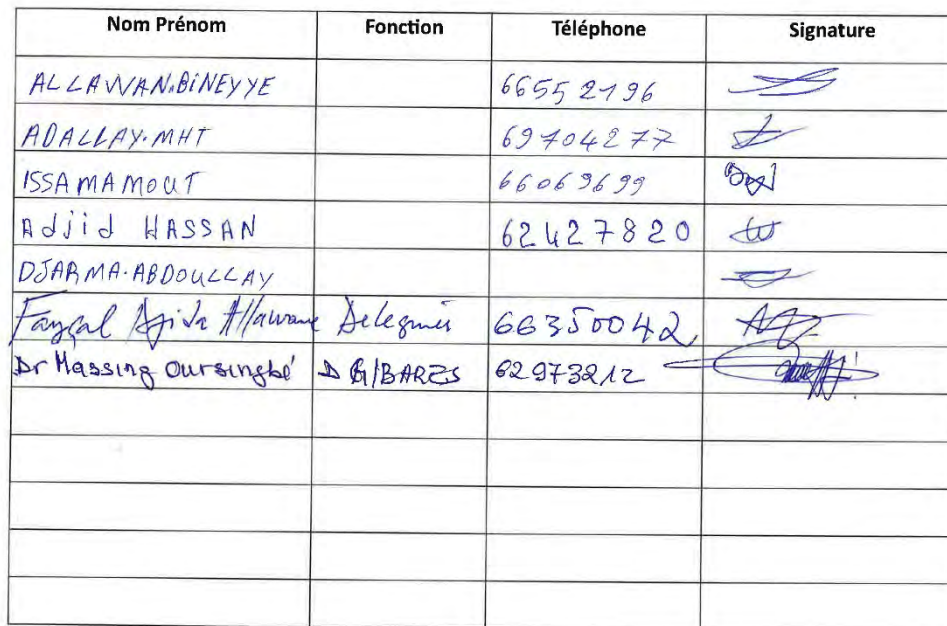 Nom Prénom Fonction Téléphone Signature
ALLAWAN.BiNEYYE 66552196
ADALLAY.MHT 69704277
ISSA MAMOUT 66069699
Adjid HASSAN 62427820
DJARMA.ABDOULLAY
Fayçal Allawane 66350042
Dr Massing Oursingbé DG/BARES 62973212